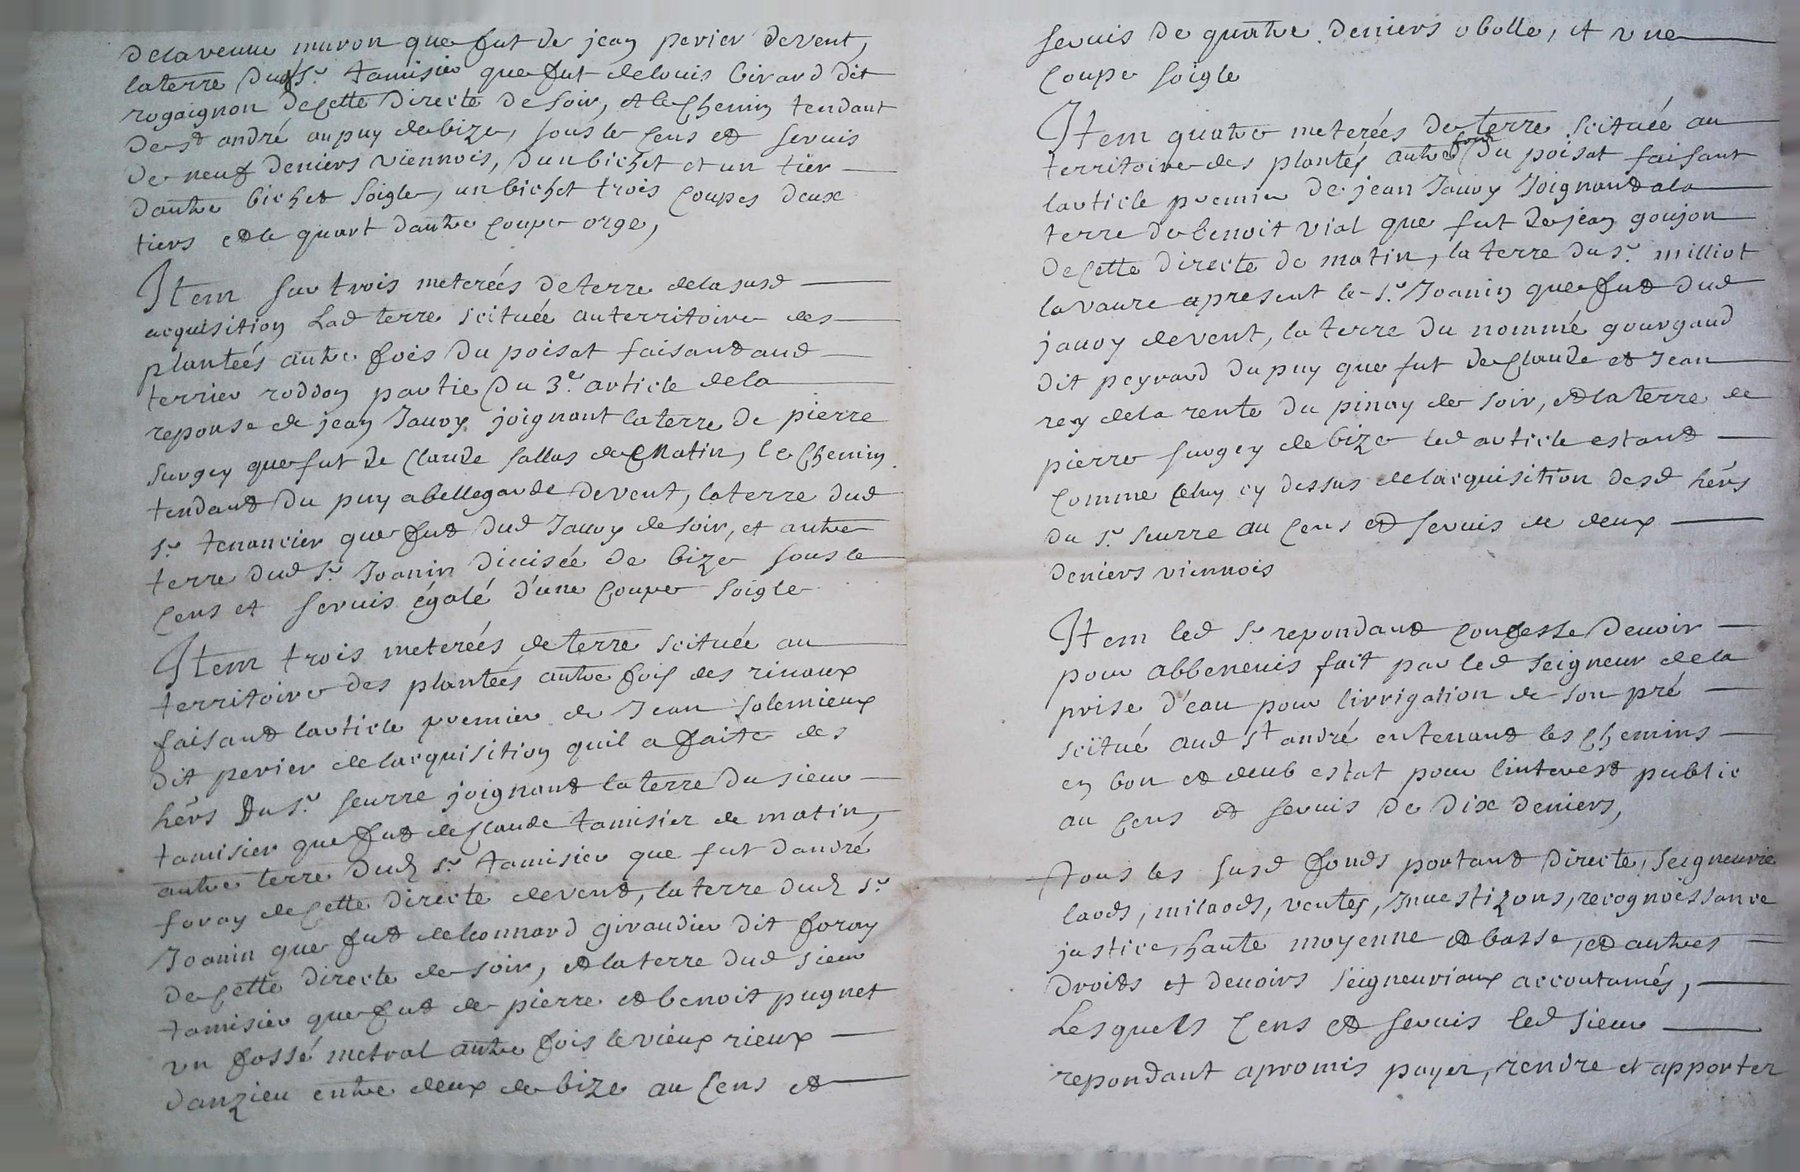 delaveuue muron que fut de jean perier devent,
laterre dud sr. tamisier que fut delouis Girard dit
rogaignon decette directe de soir, et le chemin tendant
de st andré aupuy debize, sous le cens et servis
de neuf deniers viennois, dun bichet et un tier
dautre bichet soigle, un bichet trois coupes deux
tiers et le quart dautre coupe orge,
Item sur trois meterées deterre dela susd
acquisition Lad terre scituée auterritoire des
plantées autre fois du poisat faisant aud
terrier roddon partie du 3e. article dela
reponse de jean Jauoy joignant laterre de pierre
surgey que fut de Claude sallas de matin, le chemin
tendant du puy abellegarde devent, laterre dud
sr. tenancier que fut dud Jauoy de soir, et autre
terre dud sr. Joanin diuisée de bize sous le
cens et servis égalé d'une coupe soigle
Item trois meterées de terre scituée au
territoire des plantées autre fois des rinaux
faisant larticle premier de Jean solemieux
dit perier delacquisition quil a faite des
hérs du sr. seurre joignant laterre du sieur
tamisier que fut de Claude tamisier de matin,
autre terre dud sr. tamisier que fut dandré
foray decette directe devent, laterre dud sr.
Joanin que fut deleonnard giraudier dit foray
decette directe de soir, et laterre dud sieur
tamisier que fut de pierre et benoit pugnet
un fossé metral autre fois le vieux rieux
danzieu entre deux de bize au cens et
servis de quatre deniers obolle, et une
coupe soigle
Item quatre meterées de terre scituée au
territoire des plantés autre fois du poisat faisant
larticle premier de jean Jauoy Joignant ala
terre de benoit vial que fut de jean goujon
decette directe de matin, la terre du sr. milliot
lavaure apresent le sr. Joanin que fut dud
jauoy devent, la terre du nommé gourgaud
dit peyrard du puy que fut de Claude et Jean
rey dela rente du pinay de soir, et laterre de
pierre surgey de bize led article estant
comme celuy cy dessus delacquisition desd hérs
du sr. seurre au cens et servis de deux
deniers viennois
Item led sr. repondant confesse devoir
pour abbeneuis fait par led seigneur dela
prise d'éau pour lirrigation de son pré
scitué aud st andré entenant les chemins
en bon et deub estat pour linterest public
au cens et servis de dix deniers,
Tous les susd fonds portant directe, seigneurie
laods, milaods, ventes, Inuestizons, recognoissance
justice, haute moyenne et basse, et autres
droits et devoirs seigneuriaux accoutumés,
Lesquels cens et servis led sieur
repondant apromis payer, rendre et apporter